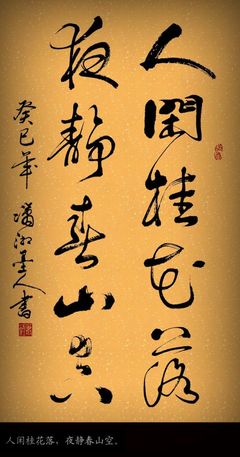 人閑桂花落
夜静春山空
癸巳年 潇湘墨人書
人闲桂花落，夜静春山空。